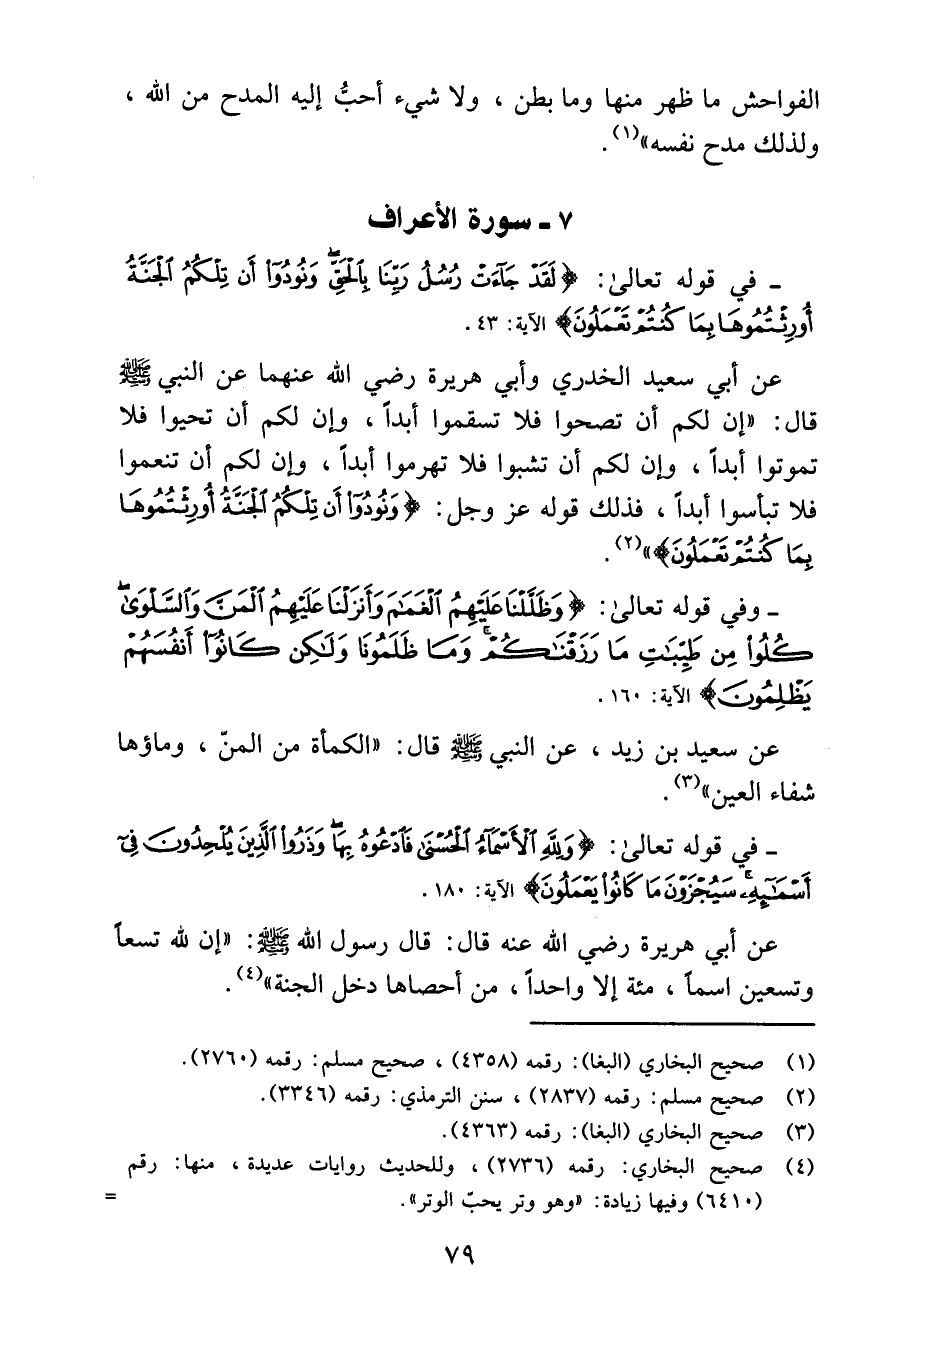 الفواحش ما ظهر منها وما بطن ، ولا شيء أحبُّ إليه المدح من الله ،
ولذلك مدح نفسه»(١) .
٧ ـ سورة الأعراف
ـ في قوله تعالىٰ: ﴿لَقَدْ جَآءَتْ رُسُلُ رَبِّنَا بِالْحَقِّۖ وَنُودُوٓا۟ أَن تِلْكُمُ الْجَنَّةُ
أُورِثْتُمُوهَا بِمَا كُنتُمْ تَعْمَلُونَ﴾ الآية: ٤٣ .
عن أبي سعيد الخدري وأبي هريرة رضي الله عنهما عن النبي ﷺ
قال: «إن لكم أن تصحوا فلا تسقموا أبداً ، وإن لكم أن تحيوا فلا
تموتوا أبداً ، وإن لكم أن تشبوا فلا تهرموا أبداً ، وإن لكم أن تنعموا
فلا تبأسوا أبداً ، فذلك قوله عز وجل: ﴿وَنُودُوٓا۟ أَن تِلْكُمُ الْجَنَّةُ أُورِثْتُمُوهَا
بِمَا كُنتُمْ تَعْمَلُونَ﴾»(٢) .
ـ وفي قوله تعالىٰ: ﴿وَظَلَّلْنَا عَلَيْهِمُ الْغَمَٰمَ وَأَنزَلْنَا عَلَيْهِمُ الْمَنَّ وَالسَّلْوَىٰۖ
كُلُوا۟ مِن طَيِّبَٰتِ مَا رَزَقْنَٰكُمْۚ وَمَا ظَلَمُونَا وَلَٰكِن كَانُوٓا۟ أَنفُسَهُمْ
يَظْلِمُونَ﴾ الآية: ١٦٠ .
عن سعيد بن زيد ، عن النبي ﷺ قال: «الكمأة من المنّ ، وماؤها
شفاء العين»(٣) .
ـ في قوله تعالىٰ: ﴿وَلِلَّهِ الْأَسْمَآءُ الْحُسْنَىٰ فَادْعُوهُ بِهَاۖ وَذَرُوا۟ الَّذِينَ يُلْحِدُونَ فِىٓ
أَسْمَٰٓئِهِۦۚ سَيُجْزَوْنَ مَا كَانُوا۟ يَعْمَلُونَ﴾ الآية: ١٨٠ .
عن أبي هريرة رضي الله عنه قال: قال رسول الله ﷺ: «إن لله تسعاً
وتسعين اسماً ، مئة إلا واحداً ، من أحصاها دخل الجنة»(٤) .
(١) صحيح البخاري (البغا): رقمه (٤٣٥٨) ، صحيح مسلم: رقمه (٢٧٦٠).
(٢) صحيح مسلم: رقمه (٢٨٣٧) ، سنن الترمذي: رقمه (٣٣٤٦).
(٣) صحيح البخاري (البغا): رقمه (٤٣٦٣).
(٤) صحيح البخاري: رقمه (٢٧٣٦) ، وللحديث روايات عديدة ، منها: رقم
(٦٤١٠) وفيها زيادة: «وهو وتر يحبّ الوتر». =
٧٩